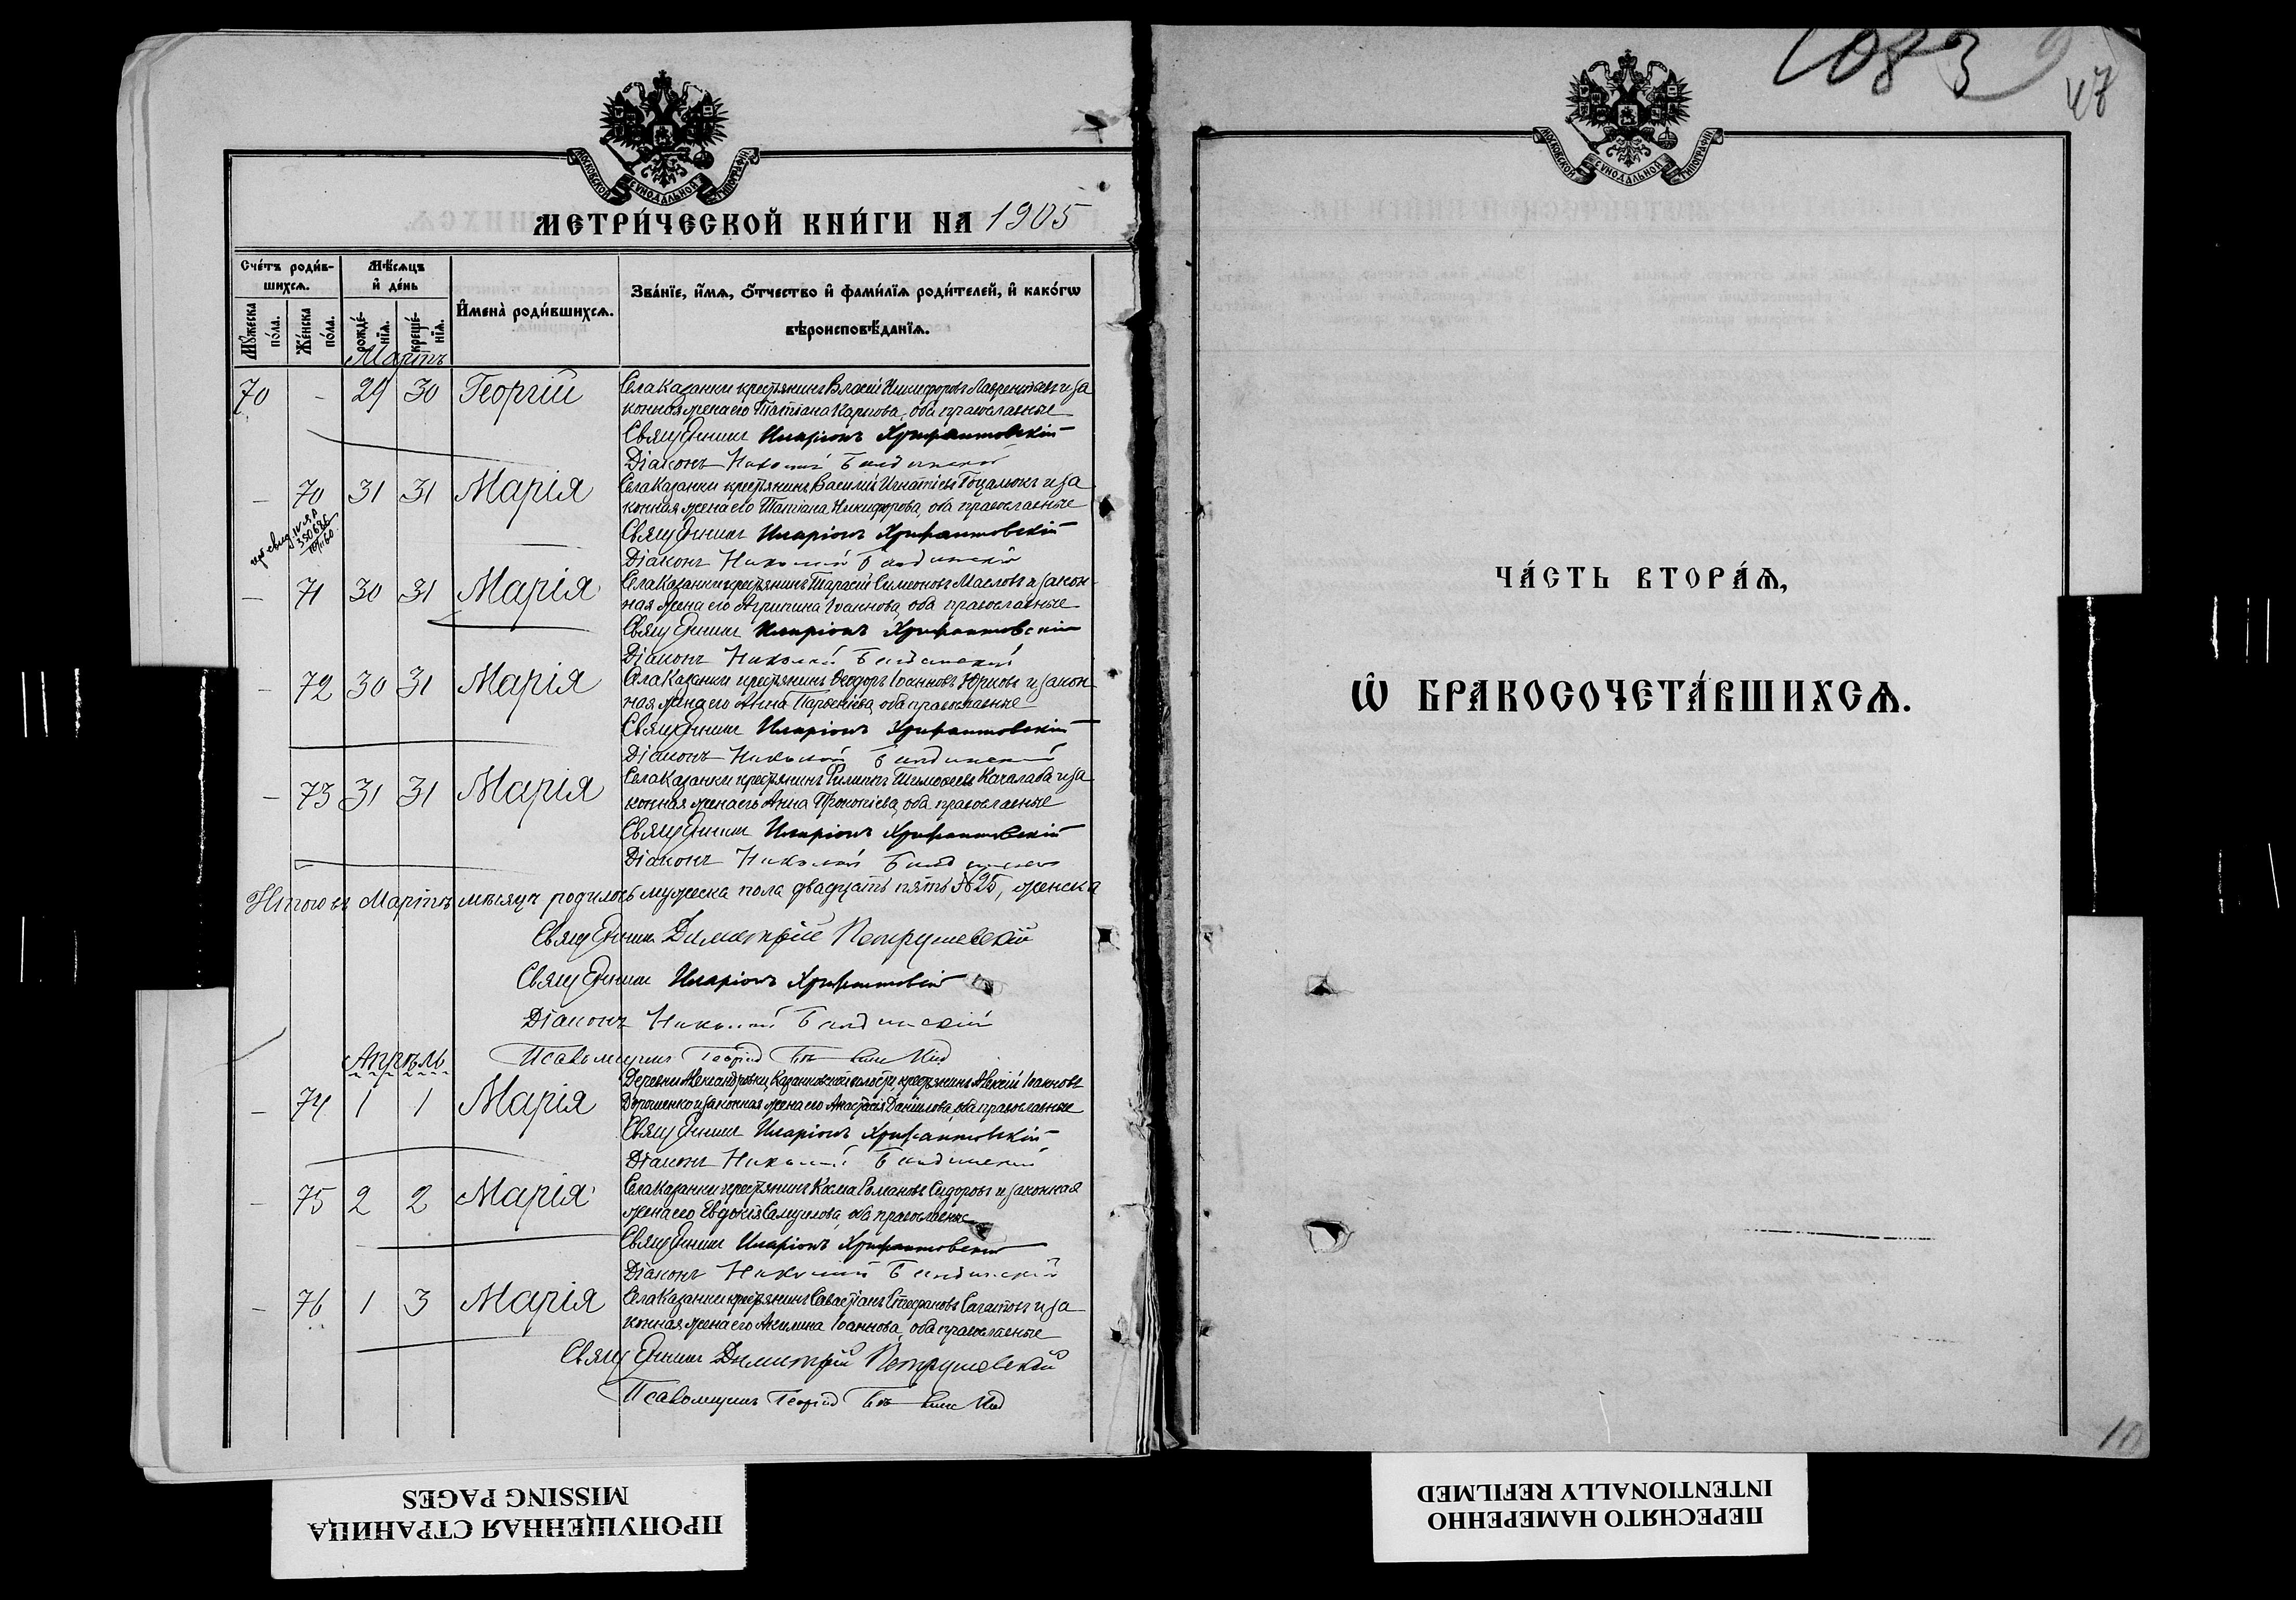 МОСКОВСКОЙ СУНОДАЛЬНОЙ ТИПОГРАФІИ
МЕТРИ́ЧЕСКОЙ КНИ́ГИ НА 1905
Сче́тъ роди́в-
шихсѧ.
Мѣ́сѧцъ
и҆ де́нь
И҆мена̀ роди́вшихсѧ.
Зва́нїе, и҆́мѧ, ѻ҆́тчество и҆ фами́лїѧ роди́телей, и҆ како́гѡ
вѣроисповѣ́данїѧ.
Мꙋ́жеска
по́ла.
Же́нска
по́ла.
рожде́-
нїѧ.
креще́-
нїѧ.
Мартъ
70 - 29 30 Георгій
Села Казанки крестьянинъ Власій Никифоровъ Лаврентьевъ и за
конная жена его Татіана Карпова, оба православные
Священник Иларіонъ Хрисантовскій
Діаконъ Николай
— 70 31 31 Марія
Села Казанки крестьянинъ Василій Игнатіевъ Гоцалюкъ и за
конная жена его Татіана Никифорова, оба православные
Священник Иларіонъ Хрисантовскій
Діаконъ Николай
— 71 30 31 Марія
Села Казанки крестьянинъ Тарасій Симеоновъ Масловъ и закон-
ная жена его Агрипина Іоаннова, оба православные
Священник Иларіонъ Хрисантовскій
Діаконъ Николай
— 72 30 31 Марія
Села Казанки крестьянинъ Ѳеодоръ Іоанновъ Юрковъ и закон-
ная жена его Анна Парѳеніева, оба православные
Священник Иларіонъ Хрисантовскій
Діаконъ Николай
— 73 31 31 Марія
Села Казанки крестьянинъ Филиппъ Тимоѳеевъ Качалаба и за
конная жена его Анна Прокопіева, оба православные
Священник Иларіонъ Хрисантовскій
Діаконъ Николай
Итого въ Мартѣ мѣсяцѣ родилось мужеска пола двадцать пять 25, женска
Священник Димитрій Петрушевскій
Священник Иларіонъ Хрисантовскій
Діаконъ Николай
Псаломщикъ Георгій
Апрѣль
— 74 1 1 Марія
Деревни Александровки, Казанковской волости, крестьянинъ Алексій Іоанновъ
Дорошенко и законная жена его Анастасія Даніилова, оба православные
Священник Иларіонъ Хрисантовскій
Діаконъ Николай
— 75 2 2 Марія
Села Казанки крестьянинъ Косма Романовъ Сидоровъ и законная
жена его Евдокія Самуилова, оба православные
Священник Иларіонъ Хрисантовскій
Діаконъ Николай
— 76 1 3 Марія
Села Казанки крестьянинъ Севастіанъ Стефановъ и за
конная жена его Акилина Іоаннова, оба православные
Священник Димитрій Петрушевскій
Псаломщикъ Георгій
ПРОПУЩЕННАЯ СТРАНИЦА
MISSING PAGES
1083
47
МОСКОВСКОЙ СУНОДАЛЬНОЙ ТИПОГРАФІИ
ЧА́СТЬ ВТОРА́Ѧ,
Ѡ҆ БРАКОСОЧЕТА́ВШИХСѦ.
10
ПЕРЕСНЯТО НАМЕРЕННО
INTENTIONALLY REFILMED